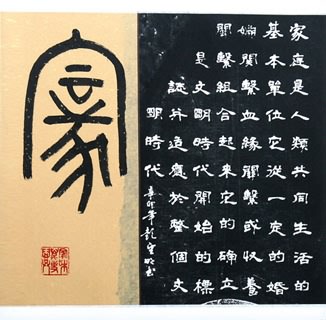 家
家庭是人類共同生活的
基本單位它從一定的婚
姻關繫血緣關繫或收養
關繫組合起來它的確立
是文明時代開始的標
誌并適應於整個文
明時代 辛卯年